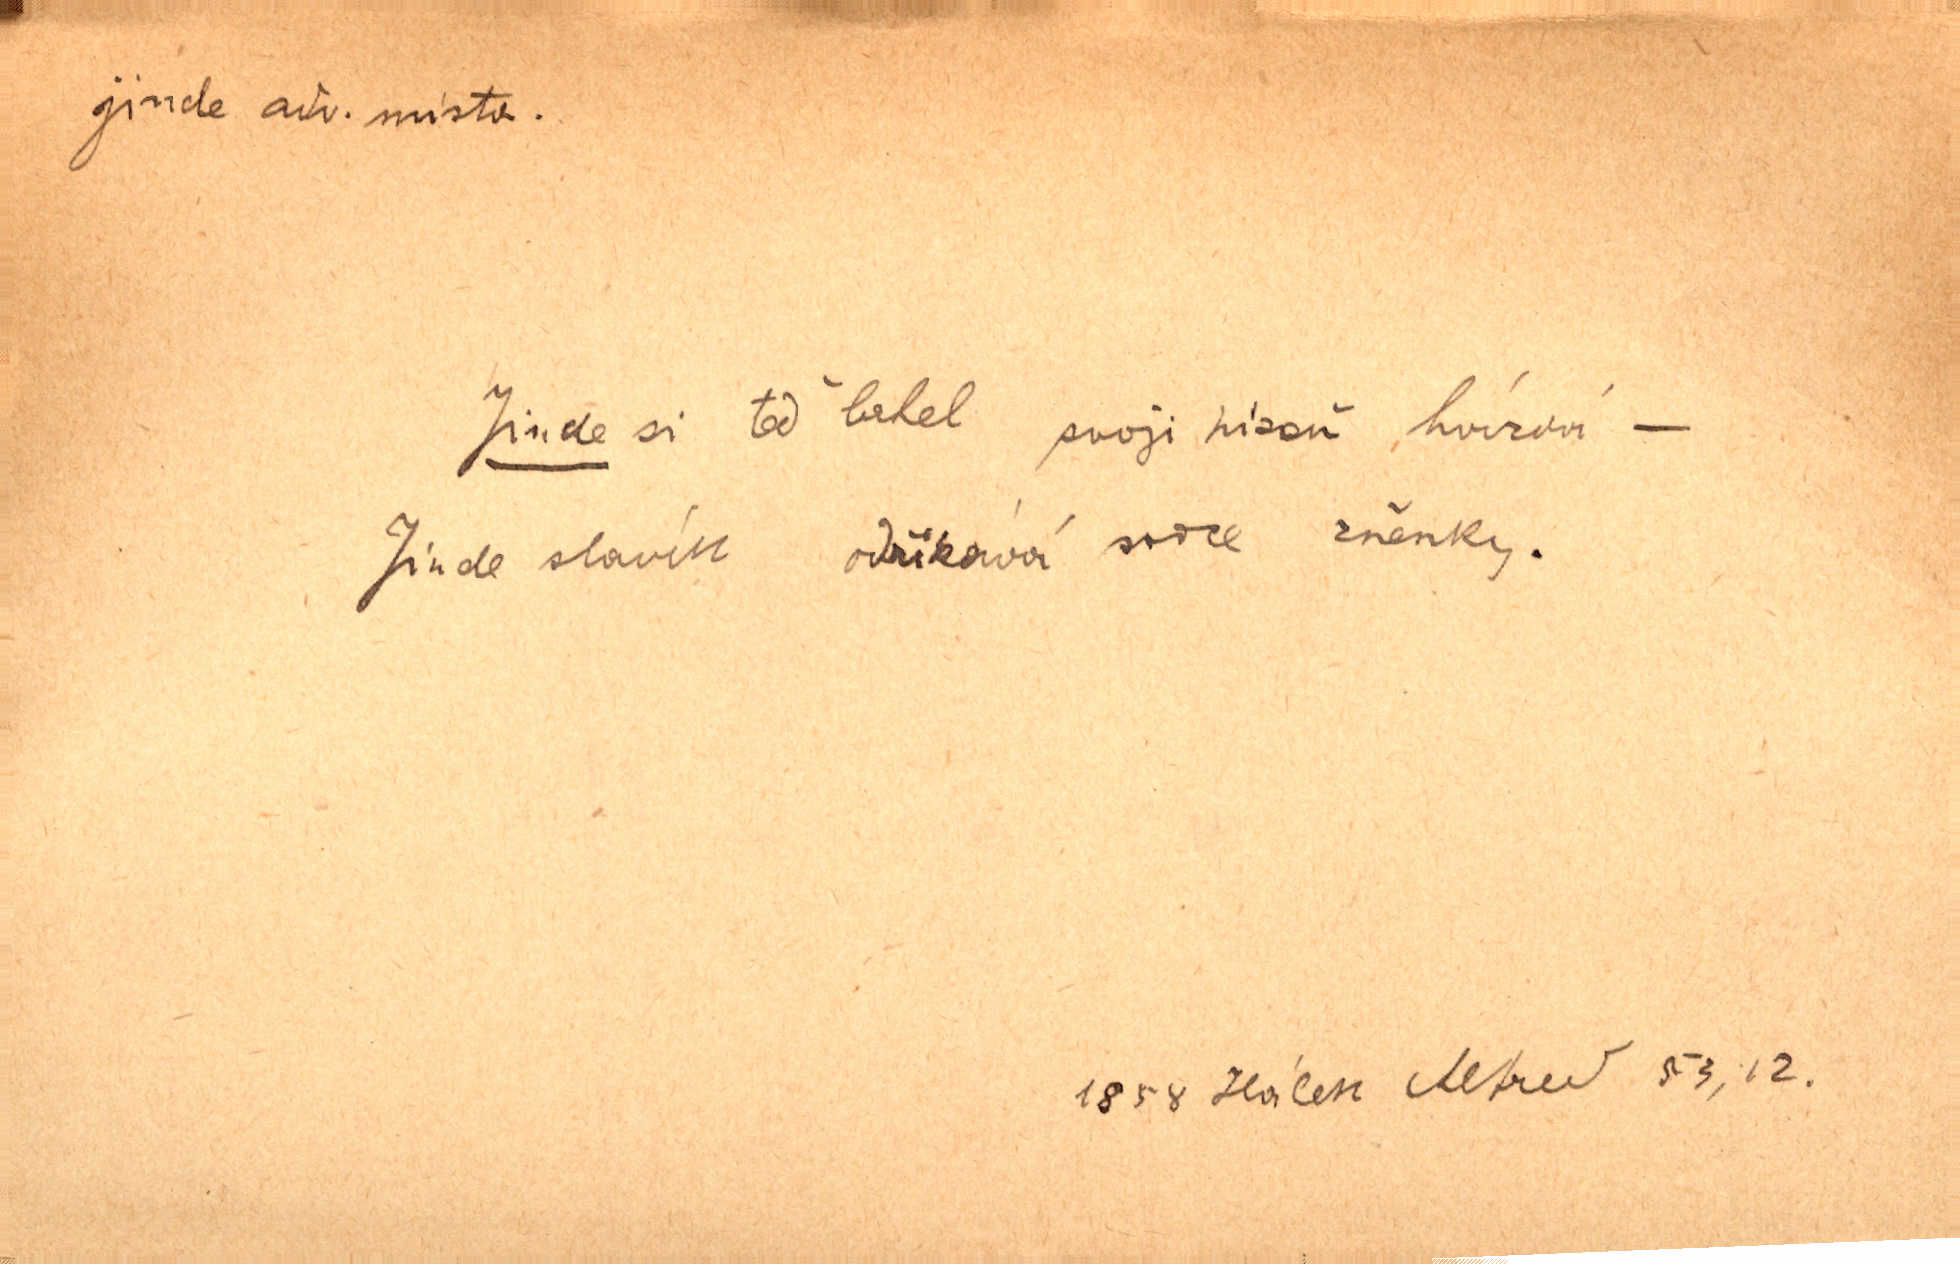 jinde adv. místa.
Jinde si teď létel svoji píseň hvízdá —
Jinde slavík odříkává srdce zněnky.
1858 Hálek Alfred 53, 12.